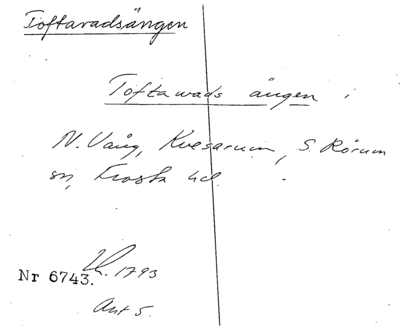 Toftaradsängen
Toftawads ängen i
N. Vång, Kvesarum, S. Rörum
sn, Frosta hd.
Nr 6743. 1793
Akt 5.